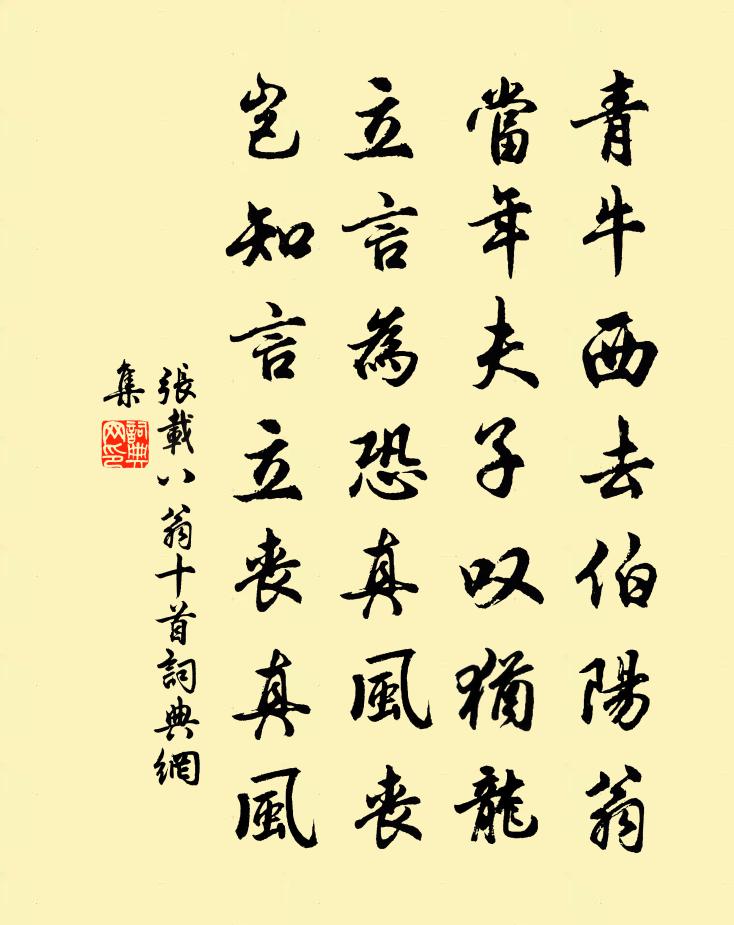 青牛西去伯陽翁
當年夫子叹猶龍
立言為恐真風喪
岂知言立喪真風
張載八翁十首詞典網
集
詞典
网印